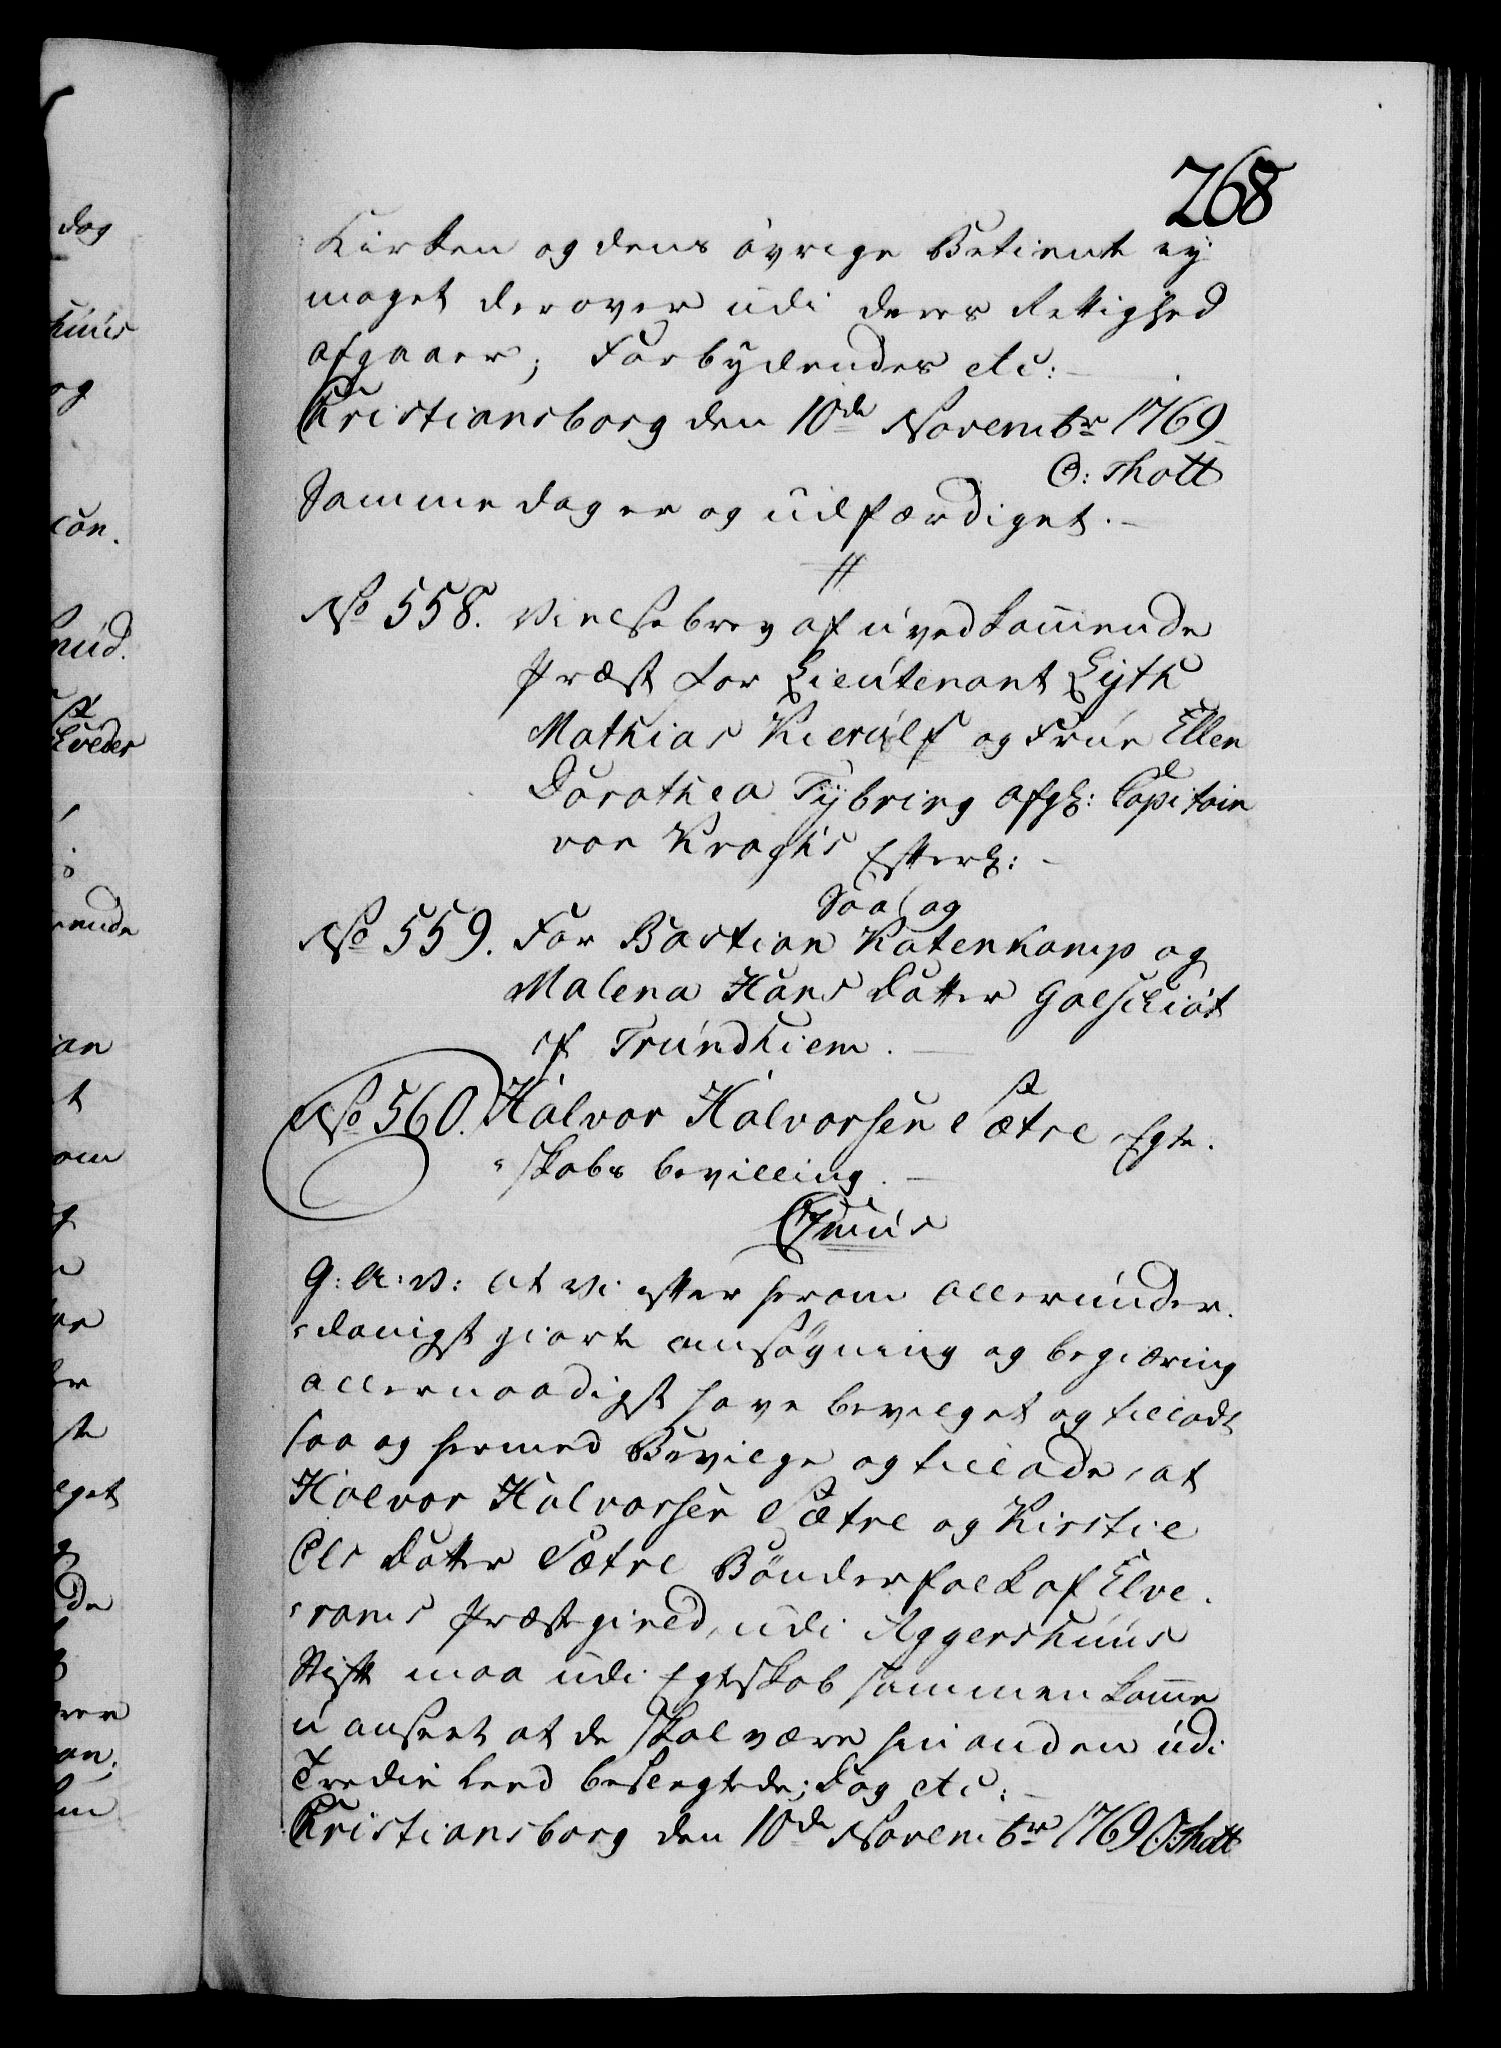 268
Kirken og dens øvrige Betiente ey
noget derover udi deres Rettighed
afgaaer; Forbydendes etc:
Christiansborg den 10de Novembr 1769
O: Thott
Samme dag er og udfærdiget.
No 558. Vielsebrev af uvedkommende
Præst for Lieutenant Lyth
Mathias Kierulf og Frue Ellen
Dorothea Tybring afgl: Capitain
von Kroghs Efterl:
Saa og
No 559. For Bastian Katenkamp og
Malena Hans Datter Galschiøt
af Trundhiem.
No 560. Halvor Halvorsen Sætre Egte-
skabs bevilling.
Cis
G: A: V: At Vi efter herom allerunder-
danigst giorte ansøgning og begiæring
allernaadigst have bevilget og tilladt
saa og hermed Bevilge og tillade, at
Halvor Halvorsen Sætre og Kirstie
Ols Datter Sætre Bønderfolk af Elve-
rams Præstegield, udi Aggershuus
Stift maa udi Egteskab sammenkomme
uanseet at de skal være hinanden udi
Tredie Leed beslegtede; Dog etc:
Christiansborg den 10de Novembr 1769 O: Thott
dog
huus
og
con.
mud.
st
veder
ende
an
t
om
og
lget
de